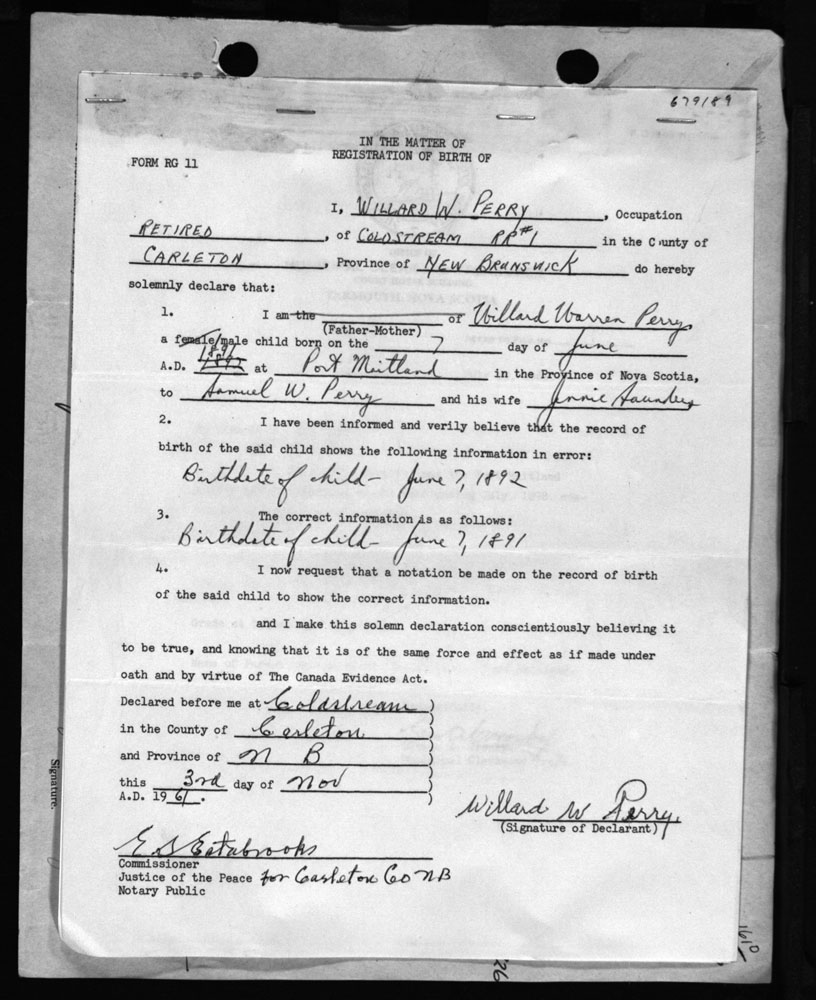 679189
IN THE MATTER OF
FORM RG 11 REGISTRATION OF BIRTH OF
I, WILLARD W. PERRY, Occupation
RETIRED, of COLDSTREAM RR#1 in the County of
CARLETON, Province of NEW BRUNSWICK do hereby
solemnly declare that:
1. I am the of Willard Warren Perry
(Father-Mother)
a female/male child born on the 7 day of June
1891
A.D. 1892 at Port Maitland in the Province of Nova Scotia,
to Samuel W. Perry and his wife Jennie Saunders
2. I have been informed and verily believe that the record of
birth of the said child shows the following information in error:
Birthdate of child - June 7, 1892
3. The correct information is as follows:
Birthdate of child - June 7, 1891
4. I now request that a notation be made on the record of birth
of the said child to show the correct information.
and I make this solemn declaration conscientiously believing it
to be true, and knowing that it is of the same force and effect as if made under
oath and by virtue of The Canada Evidence Act.
Declared before me at Coldstream )
in the County of Carleton )
and Province of N B )
this 3rd day of Nov )
A.D. 1961. )
Willard W Perry
(Signature of Declarant)
E S Estabrooks
Commissioner
Justice of the Peace for Carleton Co NB
Notary Public
Signature.
1610
26